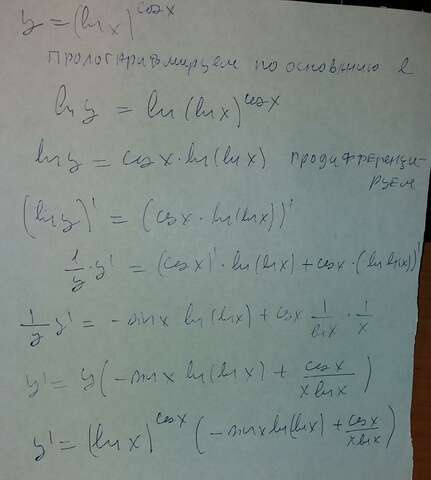 y = (ln x)^cosx
Прологарифмируем по основнию e
ln y = ln (ln x)^cosx
ln y = cosx · ln(ln x) продифференци-
руем
(ln y)' = (cosx · ln(ln x))'
1/y · y' = (cosx)' · ln(ln x) + cosx · (ln ln(x))'
1/y y' = -sinx ln(ln x) + cosx 1/lnx · 1/x
y' = y(-sinx ln(ln x) + cosx/(x lnx))
y' = (ln x)^cosx (-sinx ln(ln x) + cosx/(x lnx))